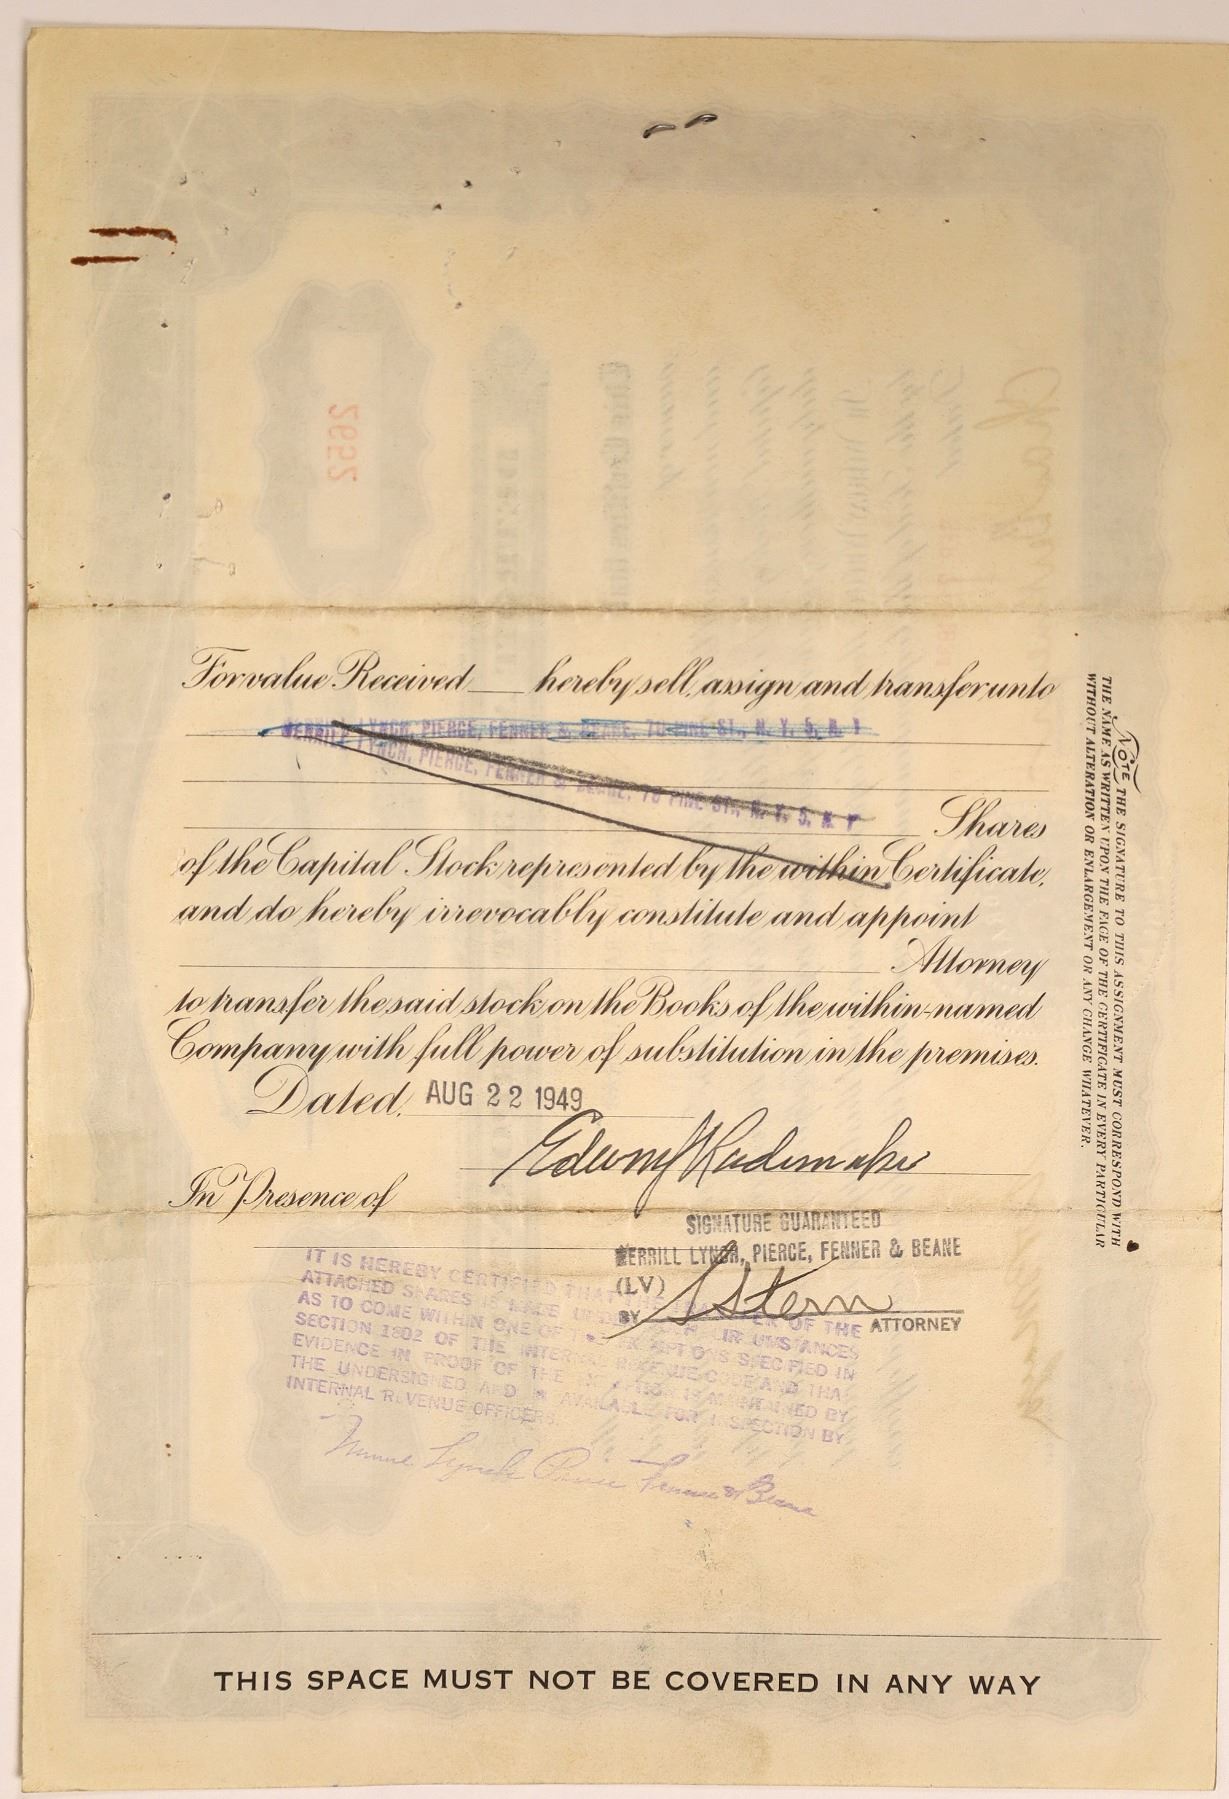 For value Received ___ hereby sell, assign and transfer unto
MERRILL LYNCH, PIERCE, FENNER & BEANE, 70 PINE ST., N. Y. 5, N. Y
MERRILL LYNCH, PIERCE, FENNER & BEANE, 70 PINE ST., N. Y. 5, N. Y
Shares
of the Capital Stock represented by the within Certificate,
and do hereby irrevocably constitute and appoint
Attorney
to transfer the said stock on the Books of the within-named
Company with full power of substitution in the premises.
Dated, AUG 22 1949
In Presence of
SIGNATURE GUARANTEED
MERRILL LYNCH, PIERCE, FENNER & BEANE
(LV)
BY Stern ATTORNEY
IT IS HEREBY CERTIFIED THAT THE TRANSFER OF THE
ATTACHED SHARES IS MADE UNDER SUCH CIRCUMSTANCES
AS TO COME WITHIN ONE OF THE EXEMPTIONS SPECIFIED IN
SECTION 1802 OF THE INTERNAL REVENUE CODE AND THAT
EVIDENCE IN PROOF OF THE EXEMPTION IS MAINTAINED BY
THE UNDERSIGNED AND IS AVAILABLE FOR INSPECTION BY
INTERNAL REVENUE OFFICERS.
Merrill Lynch Pierce Fenner & Beane
THIS SPACE MUST NOT BE COVERED IN ANY WAY
NOTE THE SIGNATURE TO THIS ASSIGNMENT MUST CORRESPOND WITH
THE NAME AS WRITTEN UPON THE FACE OF THE CERTIFICATE IN EVERY PARTICULAR
WITHOUT ALTERATION OR ENLARGEMENT OR ANY CHANGE WHATEVER.
2652